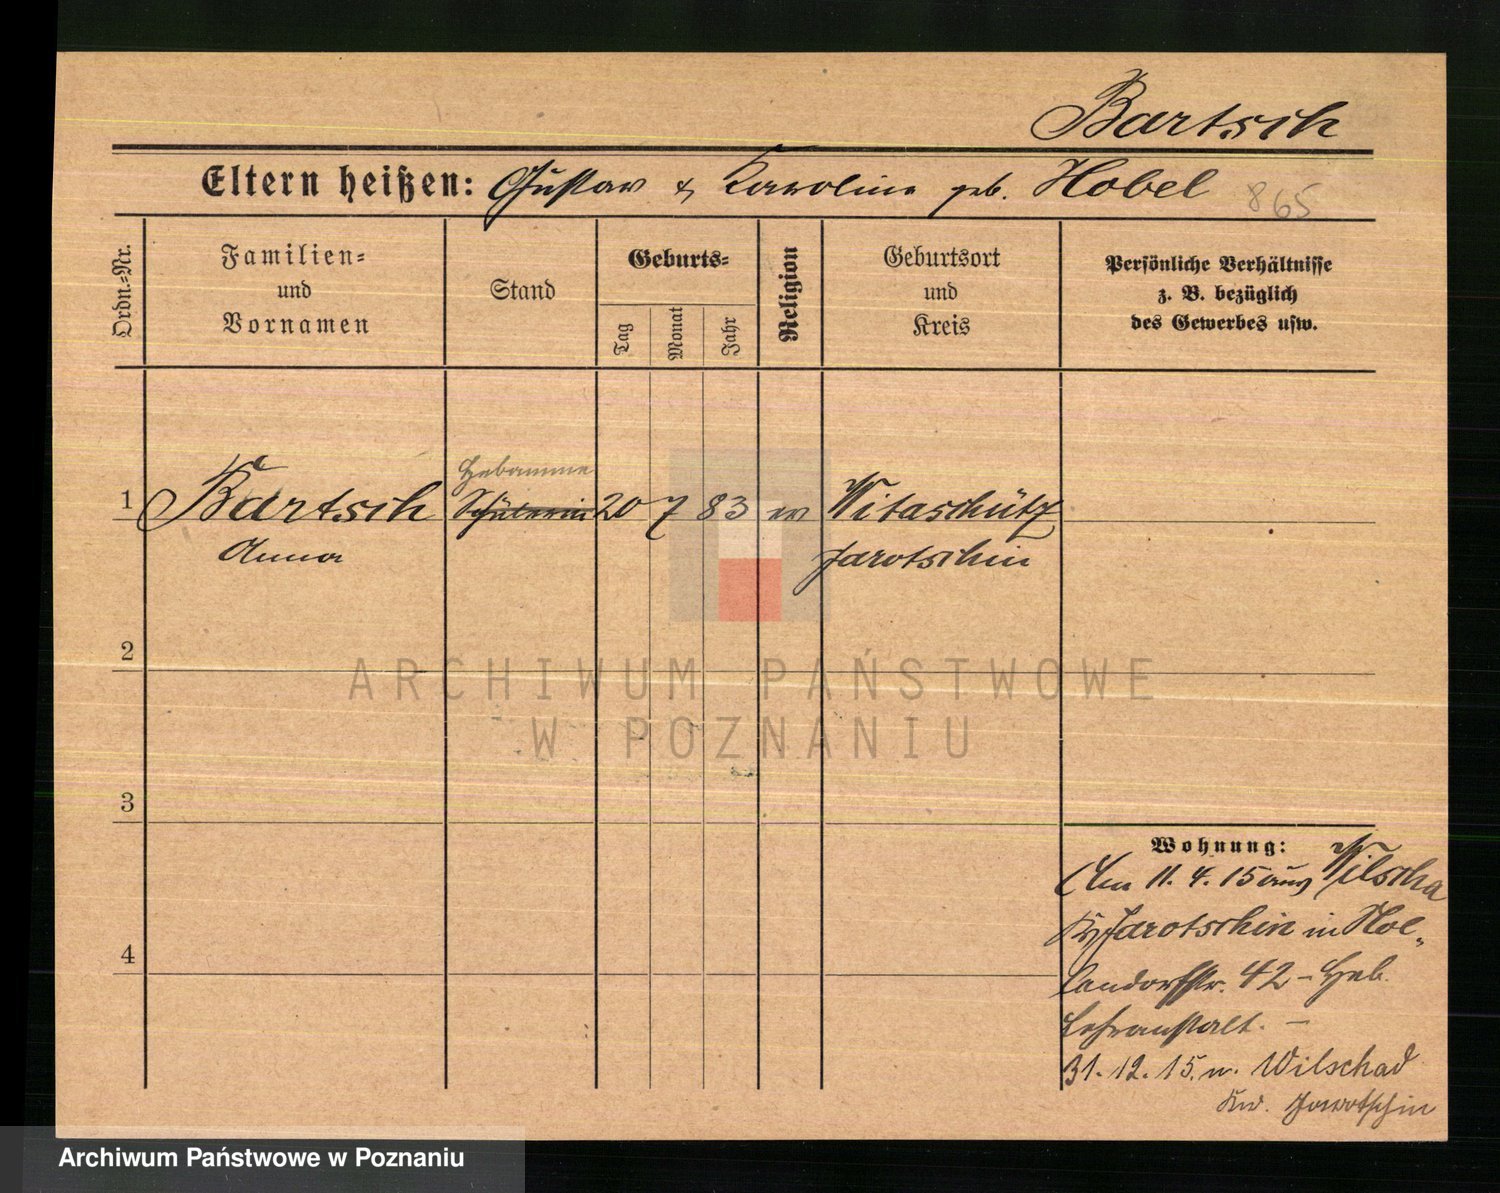 Bartsch
Eltern heißen: Gustav & Karoline geb. Hobel 865
Ordn.-Nr.
Familien-
und
Vornamen
Stand
Geburts-
Tag
Monat
Jahr
Religion
Geburtsort
und
Kreis
Persönliche Verhältnisse
z. B. bezüglich
des Gewerbes usw.
Hebamme
1 Bartsch Schülerin 20 7 83 ev Witaschütz
Anna Jarotschin
2
ARCHIWUM PAŃSTWOWE
W POZNANIU
3
Wohnung:
Am 11. 4. 15 aus Wilscha
Kr Jarotschin in Nol„
landorfstr. 42 – Heb.
Lehranstalt. –
31. 12. 15. n. Wilschad
Kr. Jarotschin
4
Archiwum Państwowe w Poznaniu